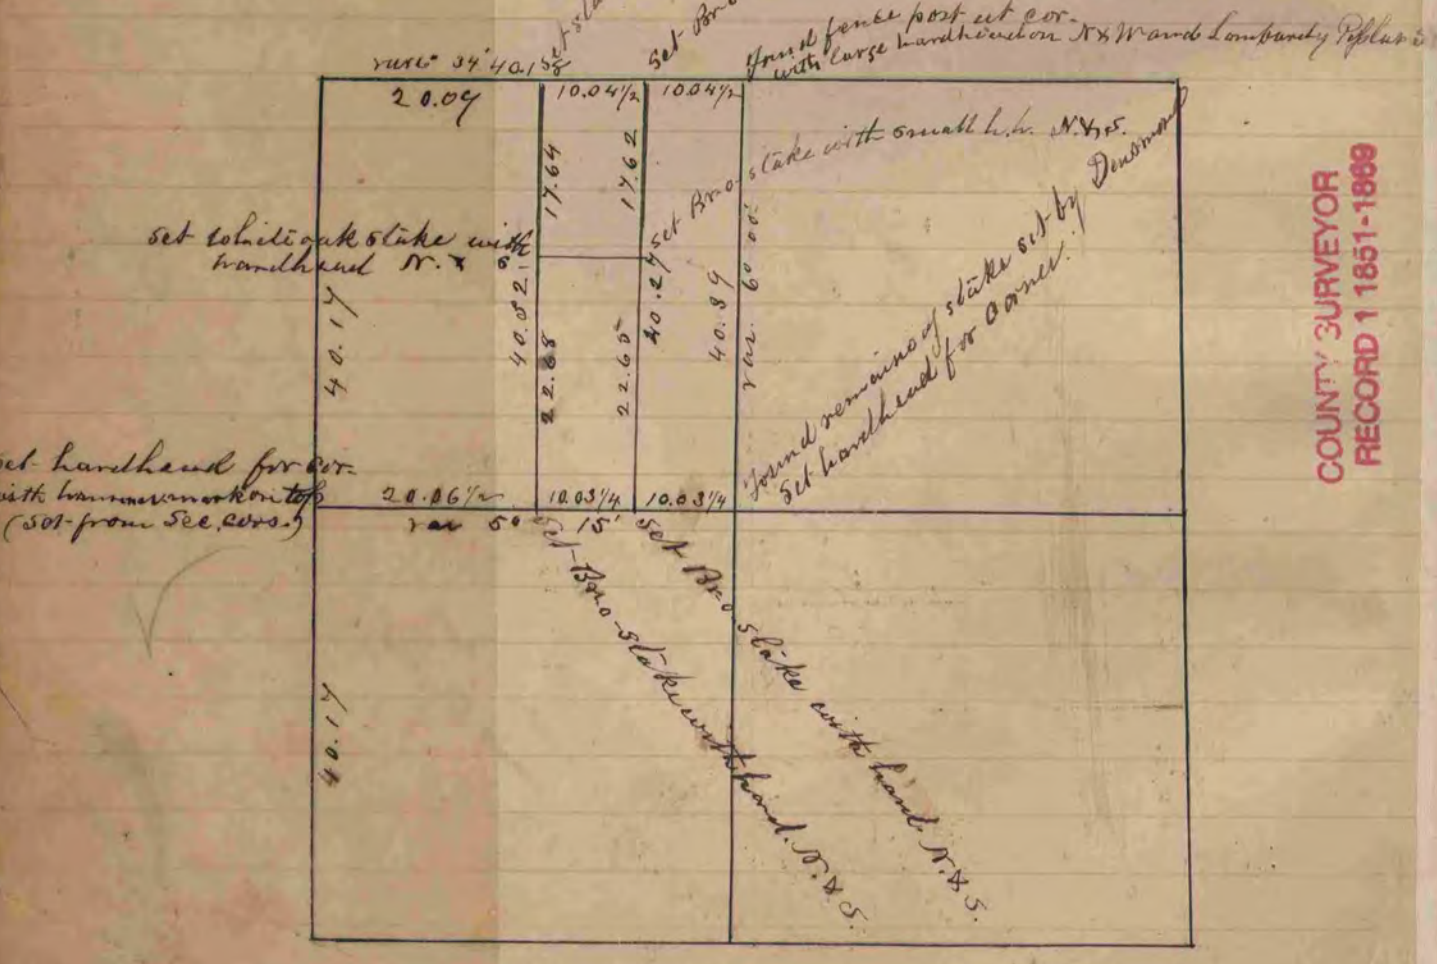 Set sta
Set Bro
Found fence post at cor.
with large hardhead on N & W and Lombardy
34' 40.18
20.09 10.04½ 10.04½
17.64
17.62
Set Bro-stake with small h.h. N. & S.
Set white oak stake with
hardhead N. &
40.17
22.68
22.65
40.27
40.39
var. 6° 00'
Found remains of stake set by
Set hardhead for Corner.
Set hardhead for cor-
with hammer mark on top
(Set from Sec. cors.)
20.06½ 10.03¼ 10.03¼
var 5° 15'
Set Bro-stake with hard. N. & S.
Set Bro stake with hard. N. & S.
40.17
COUNTY SURVEYOR
RECORD 1 1851-1869